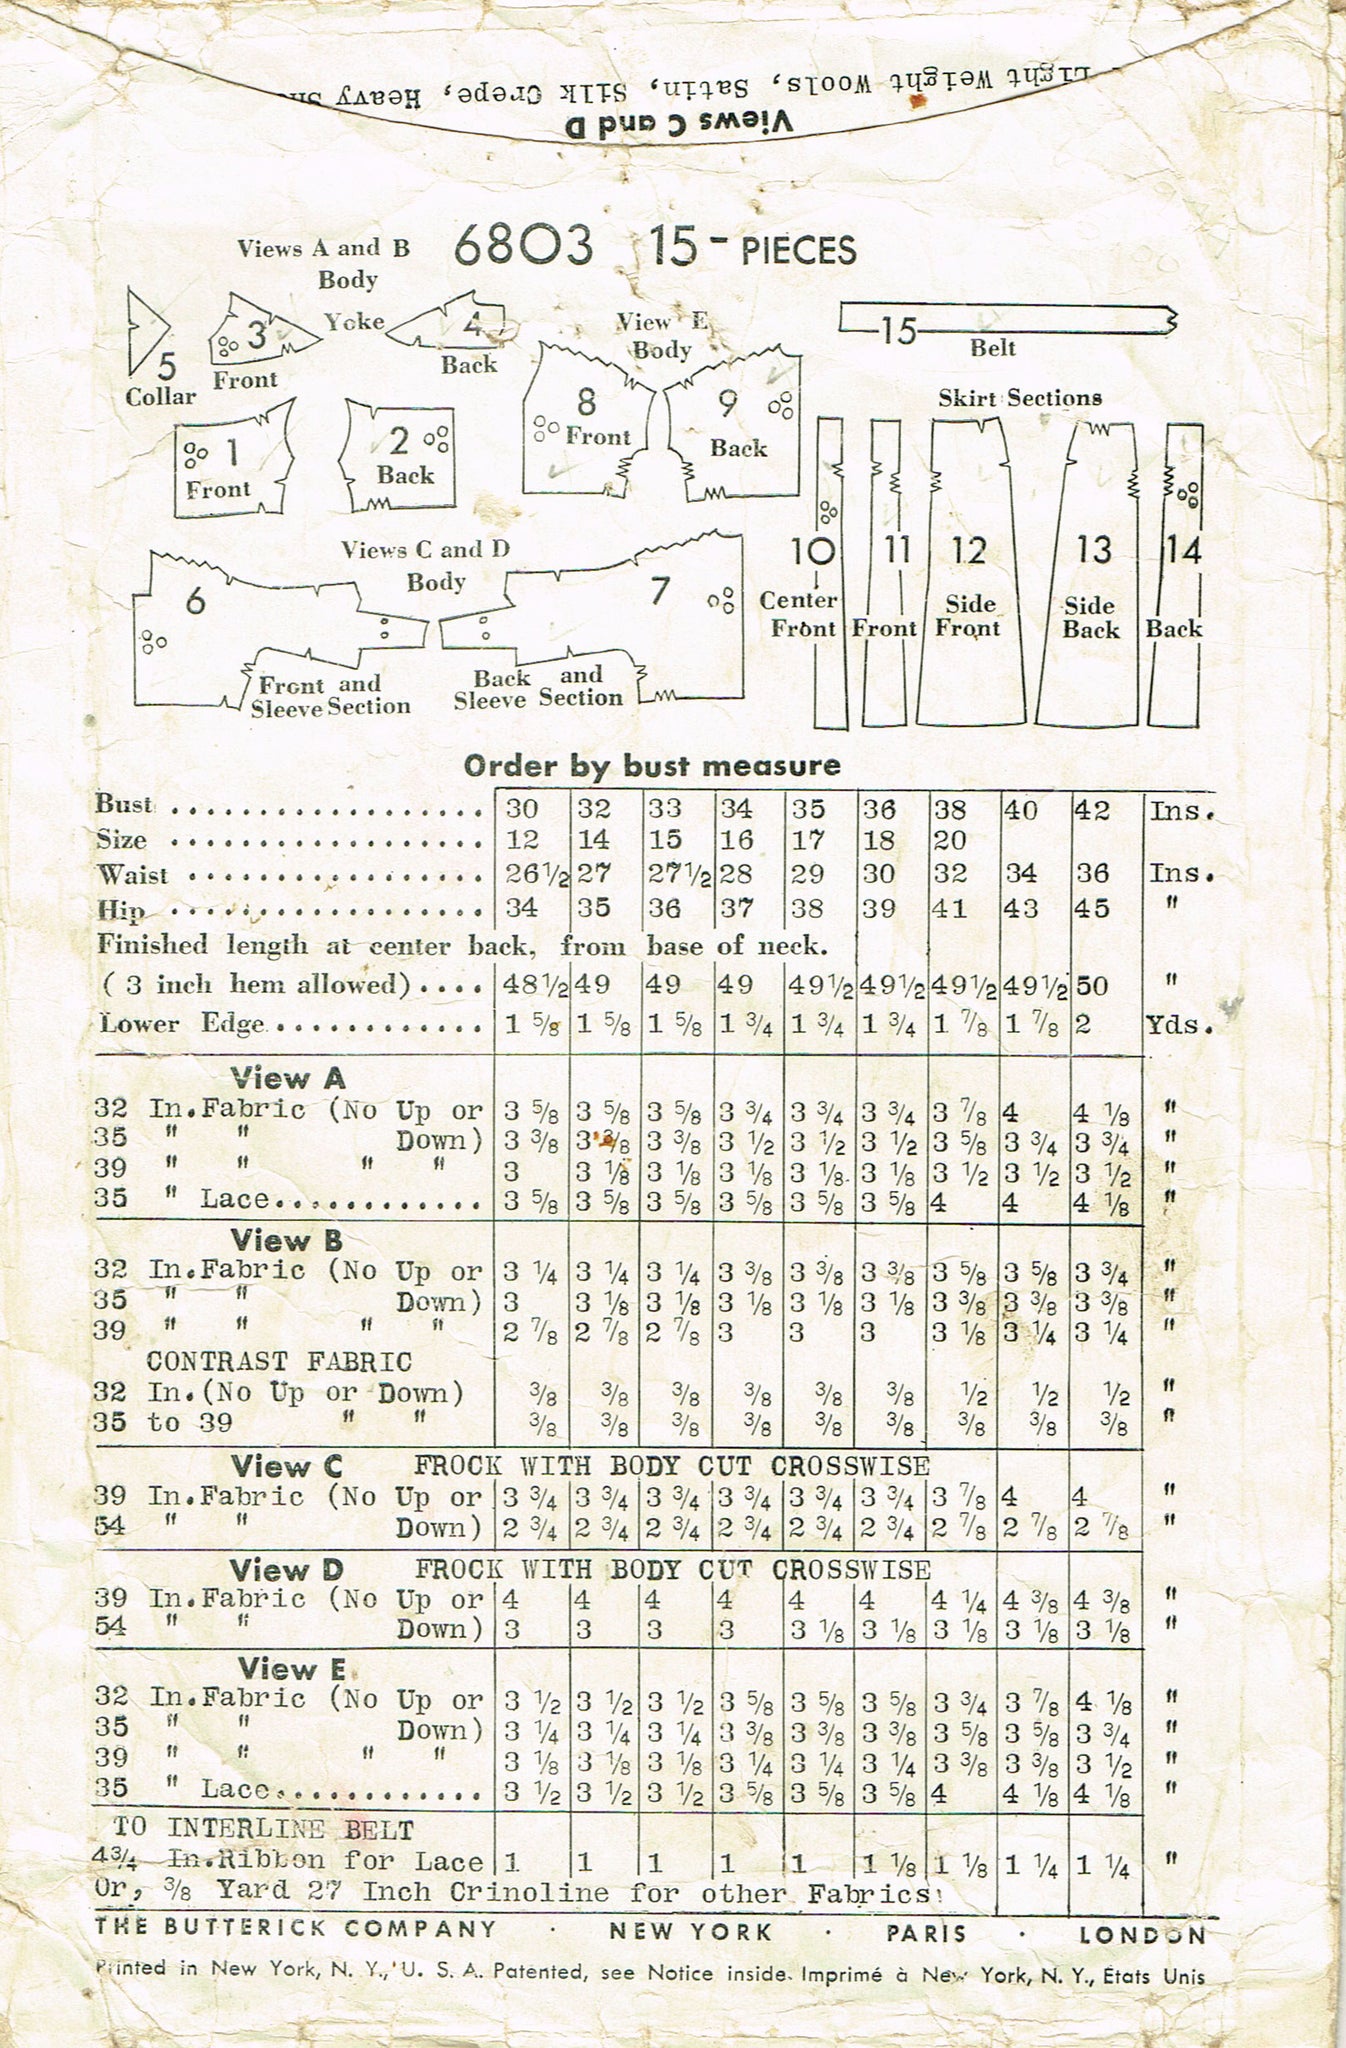 Light Weight Wools, Satin, Silk Crepe, Heavy
Views C and D
6803 15 - PIECES
Views A and B
Body
Yoke
5
Collar
3
Front
4
Back
View E
Body
15
Belt
1
Front
2
Back
8
Front
9
Back
Skirt Sections
10
Center
Front
11
Front
12
Side
Front
13
Side
Back
14
Back
Views C and D
Body
6
Front and
Sleeve Section
7
Back and
Sleeve Section
Order by bust measure
Bust 30 32 33 34 35 36 38 40 42 Ins.
Size 12 14 15 16 17 18 20
Waist 26 1/2 27 27 1/2 28 29 30 32 34 36 Ins.
Hip 34 35 36 37 38 39 41 43 45 "
Finished length at center back, from base of neck.
( 3 inch hem allowed).... 48 1/2 49 49 49 49 1/2 49 1/2 49 1/2 49 1/2 50 "
Lower Edge 1 5/8 1 5/8 1 5/8 1 3/4 1 3/4 1 3/4 1 7/8 1 7/8 2 Yds.
View A
32 In. Fabric (No Up or 3 5/8 3 5/8 3 5/8 3 3/4 3 3/4 3 3/4 3 7/8 4 4 1/8 "
35 " " Down) 3 3/8 3 3/8 3 3/8 3 1/2 3 1/2 3 1/2 3 5/8 3 3/4 3 3/4 "
39 " " " " 3 3 1/8 3 1/8 3 1/8 3 1/8 3 1/8 3 1/2 3 1/2 3 1/2 "
35 " Lace 3 5/8 3 5/8 3 5/8 3 5/8 3 5/8 3 5/8 4 4 4 1/8 "
View B
32 In. Fabric (No Up or 3 1/4 3 1/4 3 1/4 3 3/8 3 3/8 3 3/8 3 5/8 3 5/8 3 3/4 "
35 " " Down) 3 3 1/8 3 1/8 3 1/8 3 1/8 3 1/8 3 3/8 3 3/8 3 3/8 "
39 " " " " 2 7/8 2 7/8 2 7/8 3 3 3 3 1/8 3 1/4 3 1/4 "
CONTRAST FABRIC
32 In. (No Up or Down) 3/8 3/8 3/8 3/8 3/8 3/8 1/2 1/2 1/2 "
35 to 39 " " 3/8 3/8 3/8 3/8 3/8 3/8 3/8 3/8 3/8 "
View C FROCK WITH BODY CUT CROSSWISE
39 In. Fabric (No Up or 3 3/4 3 3/4 3 3/4 3 3/4 3 3/4 3 3/4 3 7/8 4 4 "
54 " " Down) 2 3/4 2 3/4 2 3/4 2 3/4 2 3/4 2 3/4 2 7/8 2 7/8 2 7/8 "
View D FROCK WITH BODY CUT CROSSWISE
39 In. Fabric (No Up or 4 4 4 4 4 4 4 1/4 4 3/8 4 3/8 "
54 " " Down) 3 3 3 3 3 1/8 3 1/8 3 1/8 3 1/8 3 1/8 "
View E
32 In. Fabric (No Up or 3 1/2 3 1/2 3 1/2 3 5/8 3 5/8 3 5/8 3 3/4 3 7/8 4 1/8 "
35 " " Down) 3 1/4 3 1/4 3 1/4 3 3/8 3 3/8 3 3/8 3 5/8 3 5/8 3 3/4 "
39 " " " " 3 1/8 3 1/8 3 1/8 3 1/4 3 1/4 3 1/4 3 3/8 3 3/8 3 1/2 "
35 " Lace 3 1/2 3 1/2 3 1/2 3 5/8 3 5/8 3 5/8 4 4 1/8 4 1/8 "
TO INTERLINE BELT
4 3/4 In. Ribbon for Lace 1 1 1 1 1 1 1/8 1 1/8 1 1/4 1 1/4 "
Or, 3/8 Yard 27 Inch Crinoline for other Fabrics
THE BUTTERICK COMPANY · NEW YORK · PARIS · LONDON
Printed in New York, N. Y., U. S. A. Patented, see Notice inside. Imprimé à New York, N. Y., États Unis